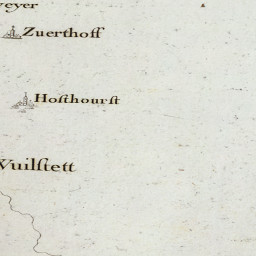 weyer
Zuerthoff
Hoſthourſt
Wuilſtett